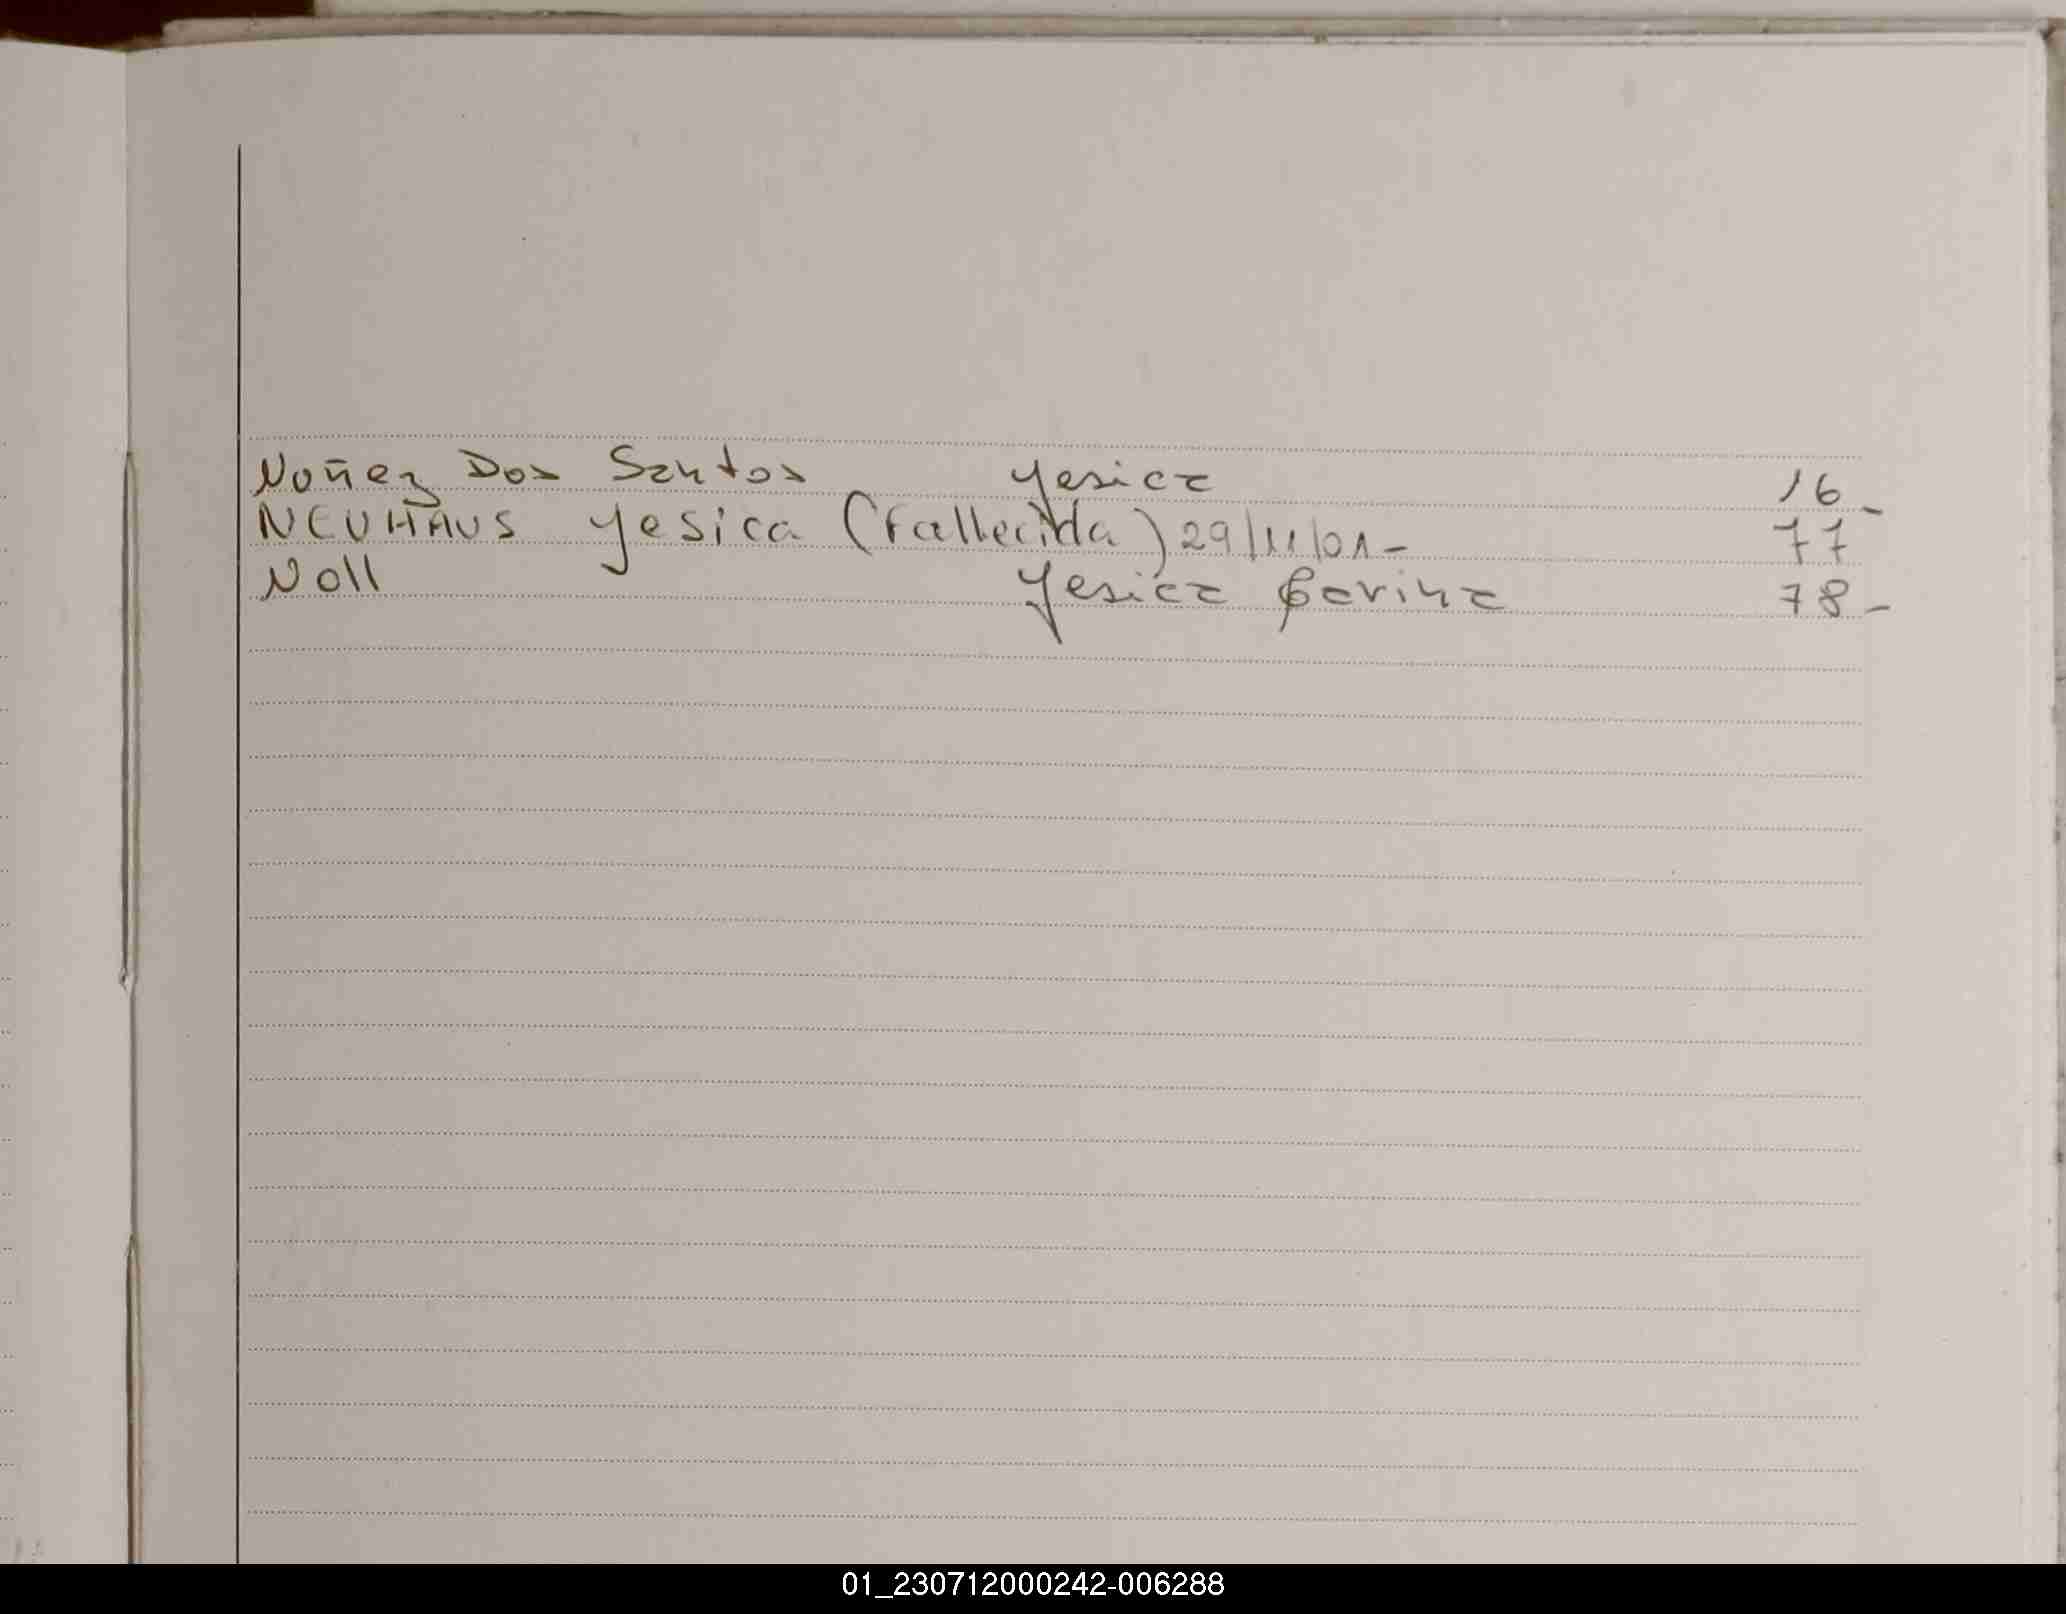 Nuñez Dos Santos Yesica 16-
NEUHAUS Yesica (Fallecida) 29/11/01- 77
Noll Yesica Carina 78-
01_230712000242-006288